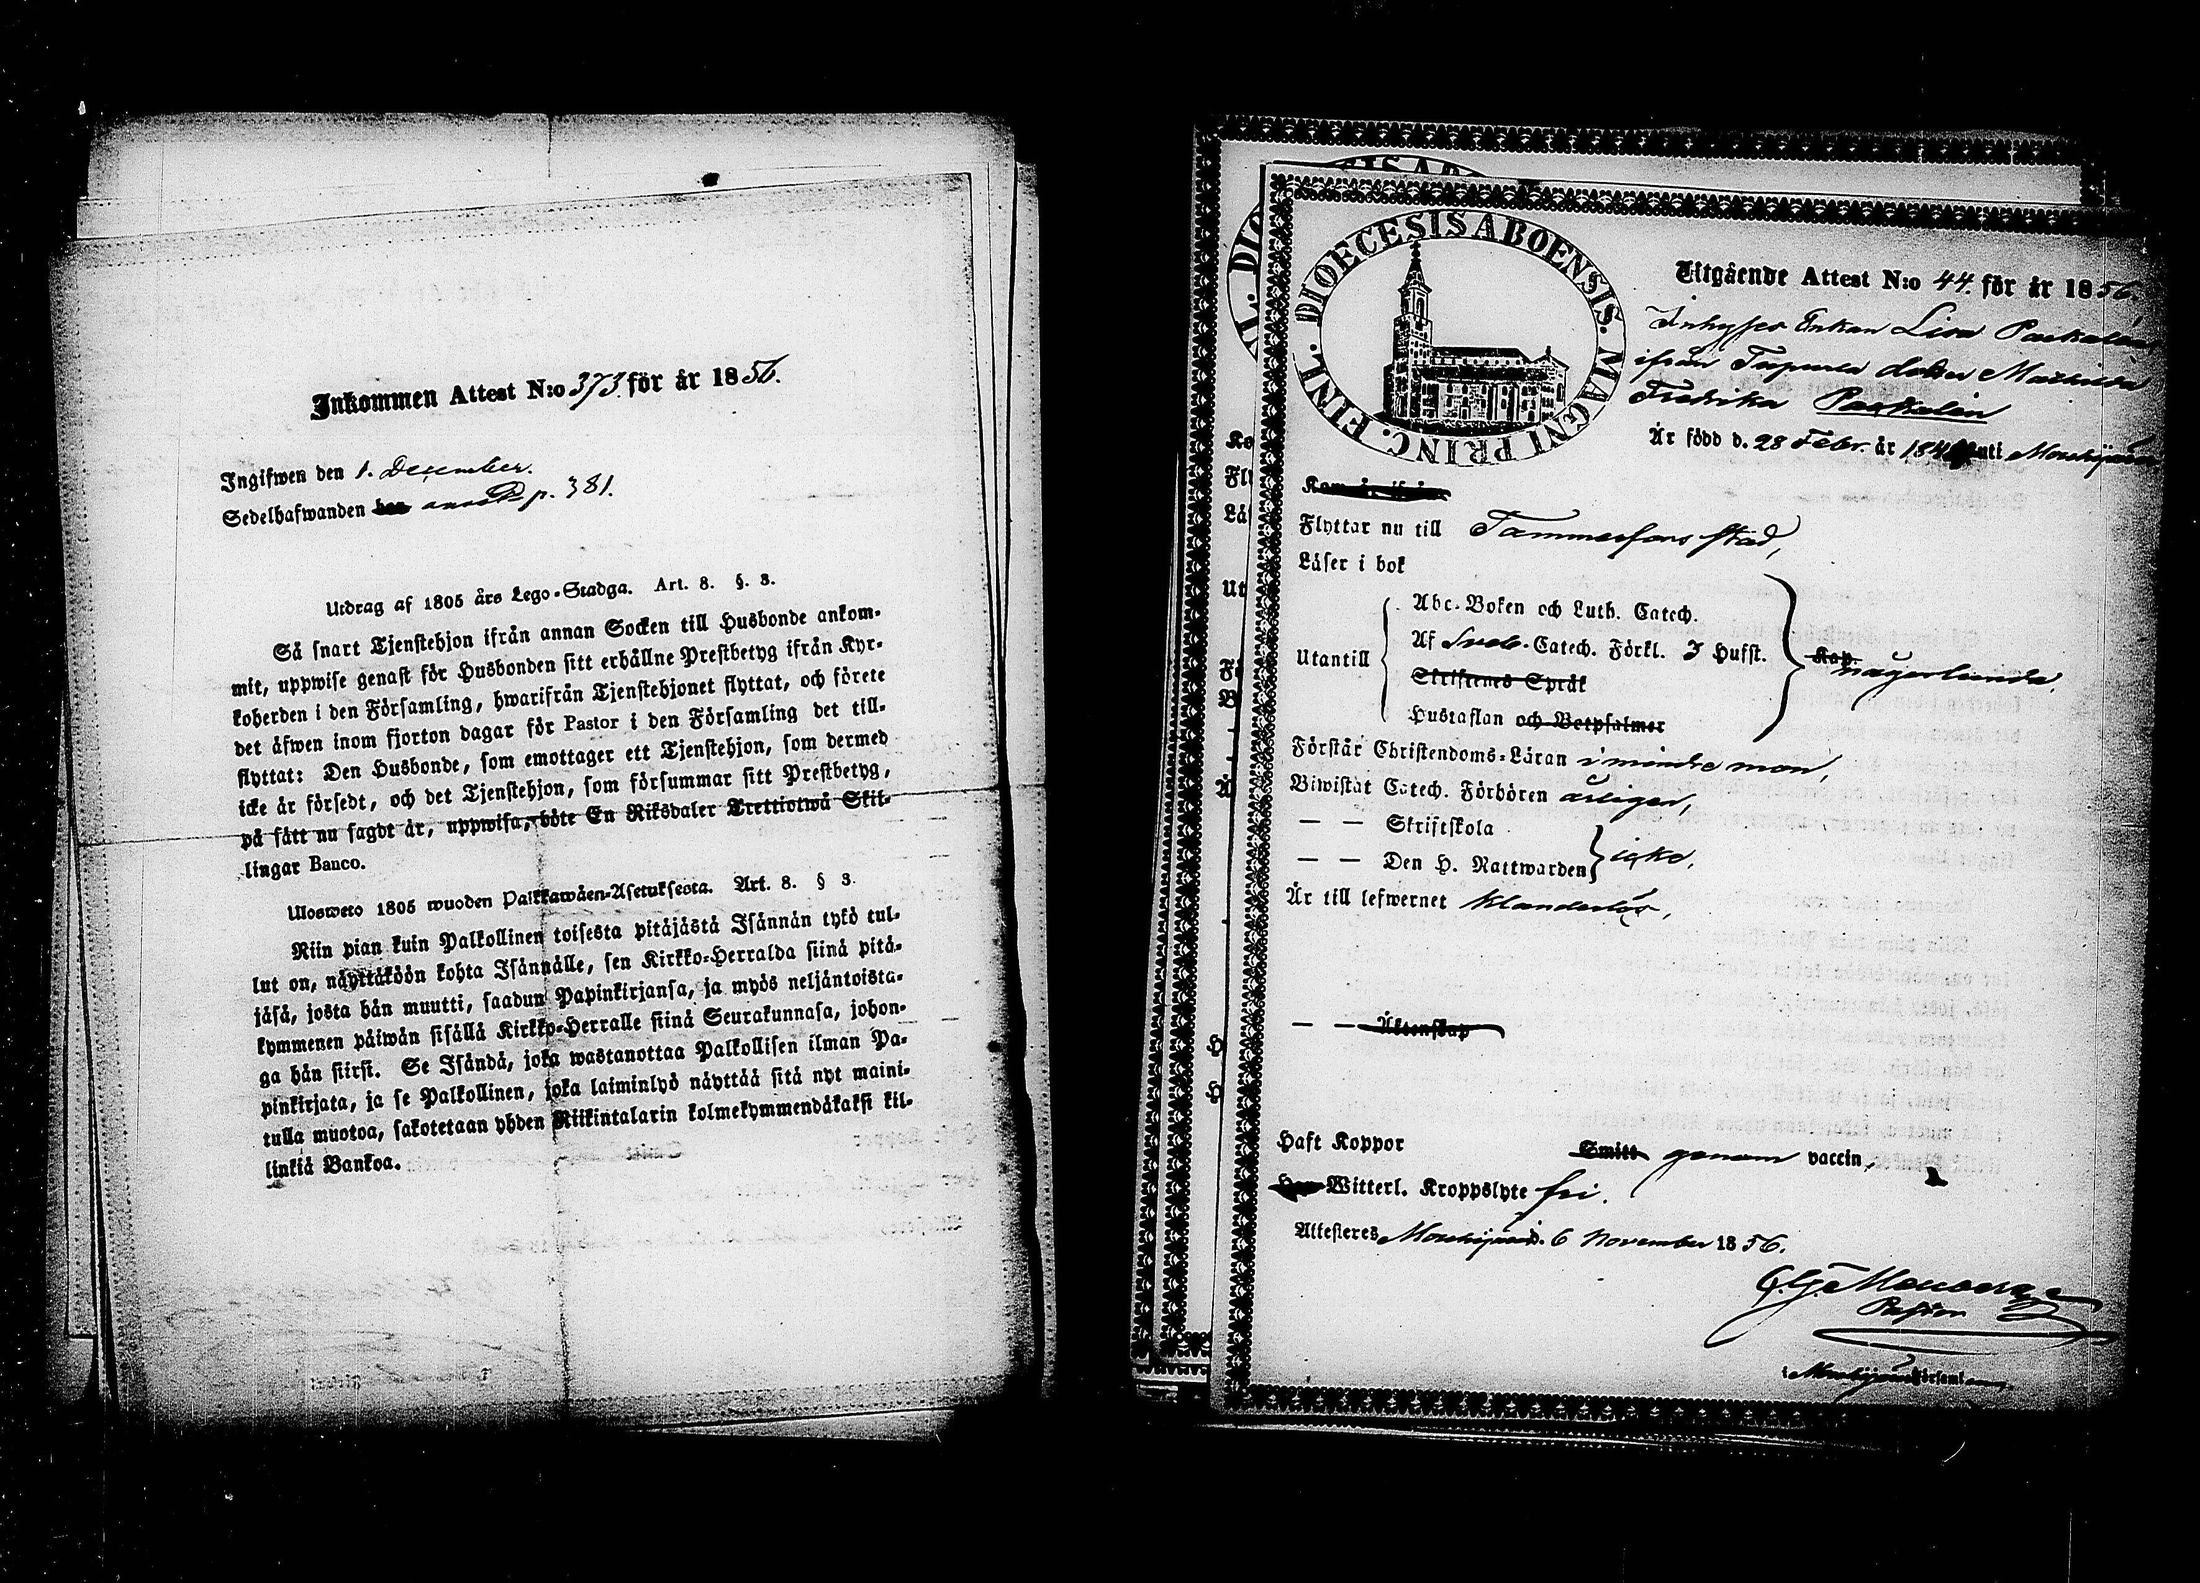 Inkommen Attest N:o 373. för år 1856.
Ingifwen den 1. December.
Sedelhafwanden har annot. p. 381.
Utdrag af 1805 års Lego-Stadga. Art. 8. §. 3.
Så snart Tjenstehjon ifrån annan Socken till Husbonde ankom-
mit, uppwise genast för Husbonden sitt erhållne Prestbetyg ifrån Kyr-
koherden i den Församling, hwarifrån Tjenstehjonet flyttat, och förete
det äfwen inom fjorton dagar för Pastor i den Församling det till-
flyttat: Den Husbonde, som emottager ett Tjenstehjon, som dermed
icke är försedt, och det Tjenstehjon, som försummar sitt Prestbetyg,
på sätt nu sagdt är, uppwisa, böte En Riksdaler Trettiotwå Skil-
lingar Banco.
Ulosweto 1805 wuoden Palkkawäen-Asetuksesta. Art. 8. § 3.
Niin pian kuin Palkollinen toisesta pitäjästä Isännän tykö tul-
lut on, näyttäköön kohta Isännälle, sen Kirkko-Herralda siinä pitä-
jäsä, josta hän muutti, saadun Papinkirjansa, ja myös neljäntoista-
kymmenen päiwän sisällä Kirkko-Herralle siinä Seurakunnasa, johon-
ga hän siirsi. Se Isändä, joka wastanottaa Palkollisen ilman Pa-
pinkirjata, ja se Palkollinen, joka laiminlyö näyttää sitä nyt maini-
tulla muotoa, sakotetaan yhden Riikintalarin kolmekymmendäkaksi kil-
linkiä Bankoa.
DIOECESIS ABOENSIS. MAGNI PRINC. FINL.
Utgående Attest N:o 44. för år 1856.
Inhyses Enkan Lisa
ifrån dotter Mathilda
Fredrika
Är född d. 28 Febr. år uti Mouhijärvi
Kom år ifrån
Flyttar nu till Tammerfors stad,
Läser i bok
Abc-Boken och Luth. Catech.
Af Sveb. Catech. Förkl. I Hufst.
Utantill
Kap.
någorlunda.
Skriftenes Språk
Hustaflan och Botpsalmer
Förstår Christendoms-Läran i mindre mon,
Biwistat Catech. Förhören årligen,
— — Skriftskola
— — Den H. Nattwarden icke,
Är till lefwernet klanderlös,
— — Äktenskap
Haft Koppor Smitt genom vaccin,
Har Witterl. Kroppslyte fri.
Attesteras Mouhijärvi d. 6 November 1856.
Pastor
i Mouhijärvi Församl